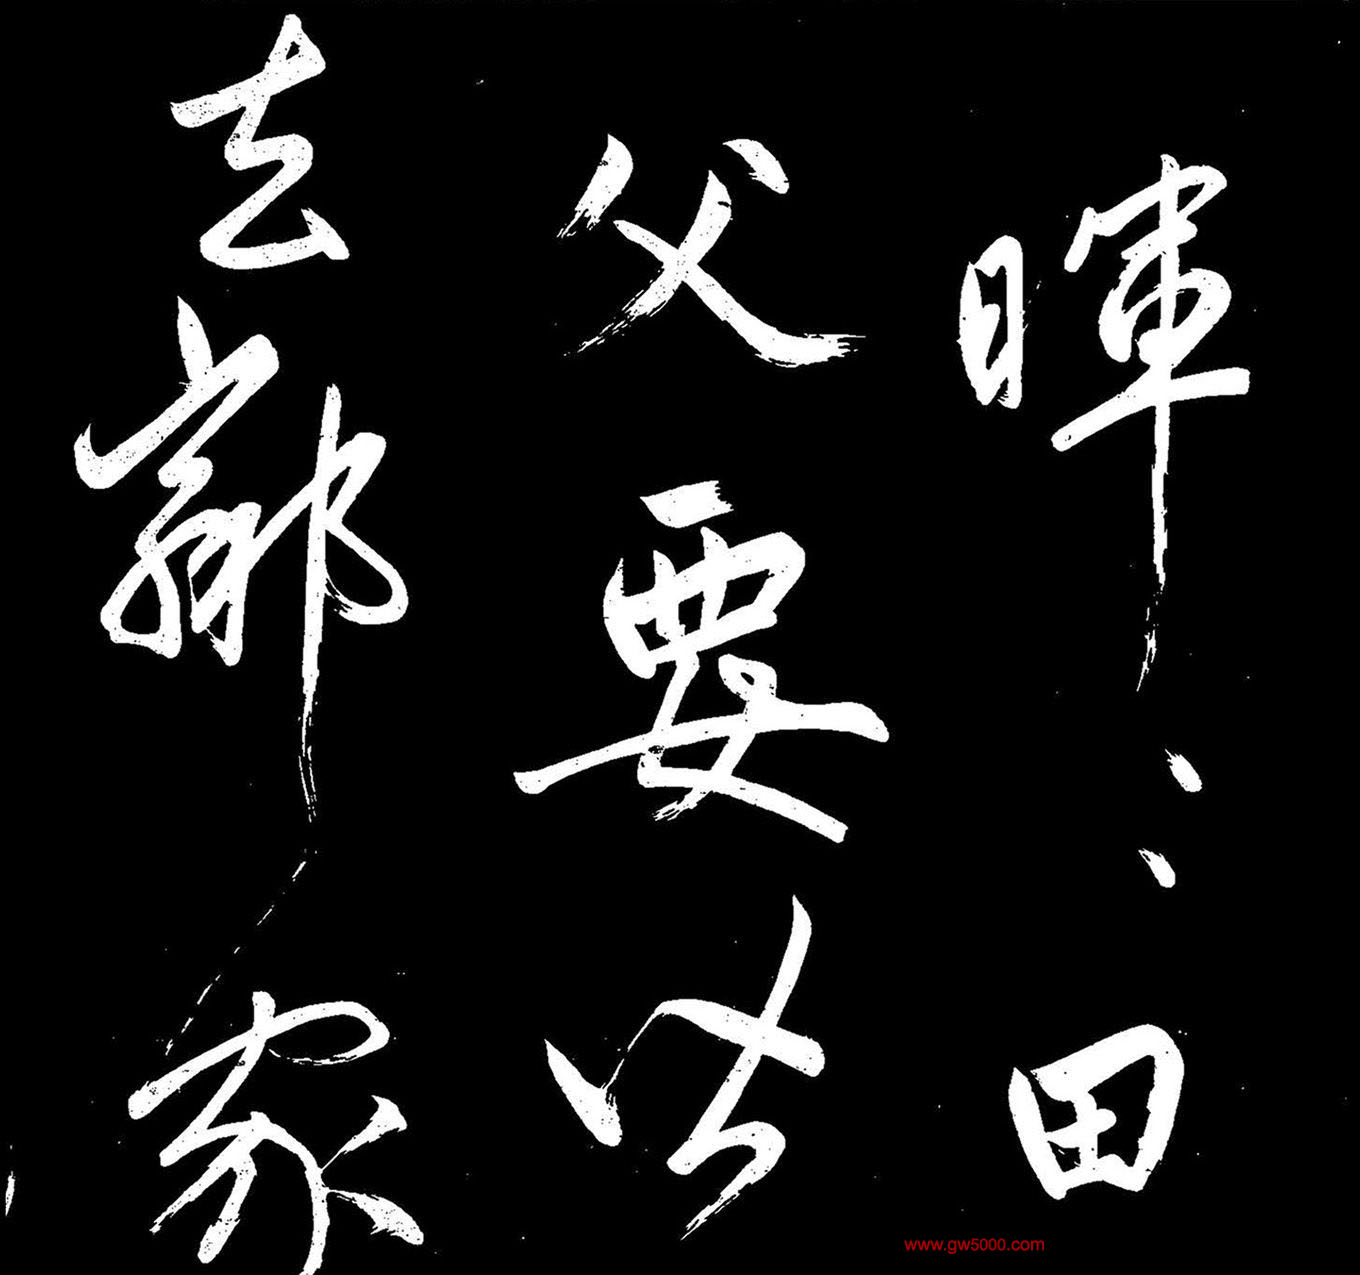 暉〻田
父要皆
去鄰家
www.gw5000.com